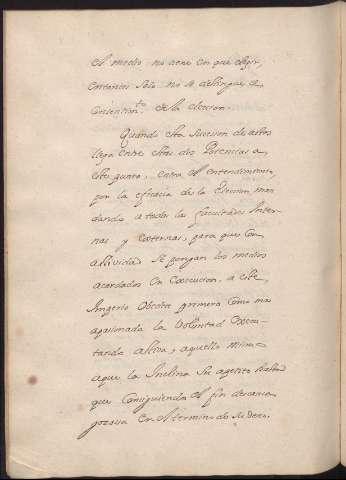 el medio no tiene en que elegir,
entonces solo no se distingue el
consentim.to de la eleccion.
Quando esta sucesion de actos
llega entre estas dos Potencias a
este punto, entra el entendimiento
por la eficacia de la eleccion man
dando a todas las facultades Inter
nas y externas, para que con
actividad se pongan los medios
acordados en execucion. a este
Imperio Obedece primero como mas
apasionada la Voluntad Execu
tando activa, aquello mismo
aque la Inclina su apetito hasta
que Consiguiendo el fin descansa
gozosa en el termino de su deseo.